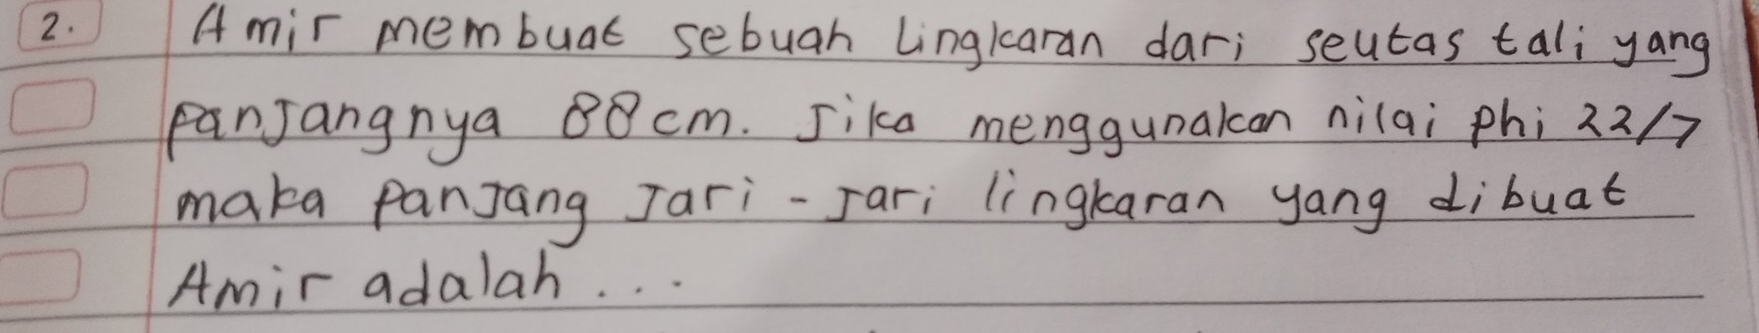 2. Amir membuat sebuah lingkaran dari seutas tali yang
panjangnya 88 cm. Jika menggunakan nilai phi 22/7
maka panjang jari - jari lingkaran yang dibuat
Amir adalah ...